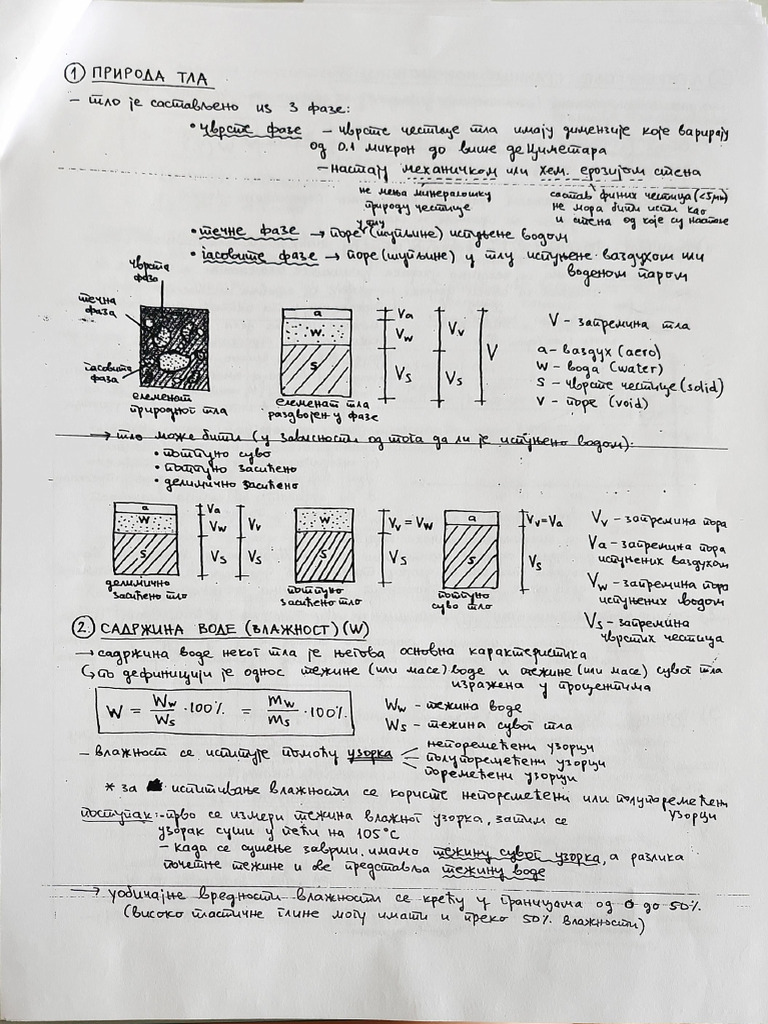 ① ПРИРОДА ТЛА
– тло је састављено из 3 фазе:
• чврсте фазе – чврсте честице тла имају димензије које варирају
од 0.1 микрон до више дециметара
– настају механичком или хем. ерозијом стена
не мења минералошку
природу честице
састав финих честица (<5μm)
не мора бити исти као
и стена од које су настале
• течне фазе → поре (шупљине) у тлу испуњене водом
• гасовите фазе → поре (шупљине) у тлу испуњене ваздухом или
воденом паром
чврста
фаза
течна
фаза
гасовита
фаза
елеменат
природног тла
a
w
s
елеменат тла
раздвојен у фазе
Va
Vw
Vs
Vv
Vs
V
V – запремина тла
a – ваздух (aero)
w – вода (water)
s – чврсте честице (solid)
v – поре (void)
→ тло може бити (у зависности од тога да ли је испуњено водом):
• потпуно суво
• потпуно засићено
• делимично засићено
a
w
s
Va
Vw
Vs
Vv
Vs
делимично
засићено тло
w
s
Vv = Vw
Vs
потпуно
засићено тло
a
s
Vv = Va
Vs
потпуно
суво тло
Vv – запремина пора
Va – запремина пора
испуњених ваздухом
Vw – запремина пора
испуњених водом
Vs – запремина
чврстих честица
② САДРЖИНА ВОДЕ (ВЛАЖНОСТ) (W)
→ садржина воде неког тла је његова основна карактеристика
↳ по дефиницији је однос тежине (или масе) воде и тежине (или масе) сувог тла
изражена у процентима
W = Ww/Ws · 100% = mw/ms · 100%
Ww – тежина воде
Ws – тежина сувог тла
– влажност се испитује помоћу узорка
непоремећени узорци
полупоремећени узорци
поремећени узорци
* за испитивање влажности се користе непоремећени или полупоремећени
узорци
поступак: – прво се измери тежина влажног узорка, затим се
узорак суши у пећи на 105°C
– када се сушење заврши, имамо тежину сувог узорка, а разлика
почетне тежине и ове представља тежину воде
→ уобичајне вредности влажности се крећу у границама од 0 до 50%
(високо пластичне глине могу имати и преко 50% влажности)